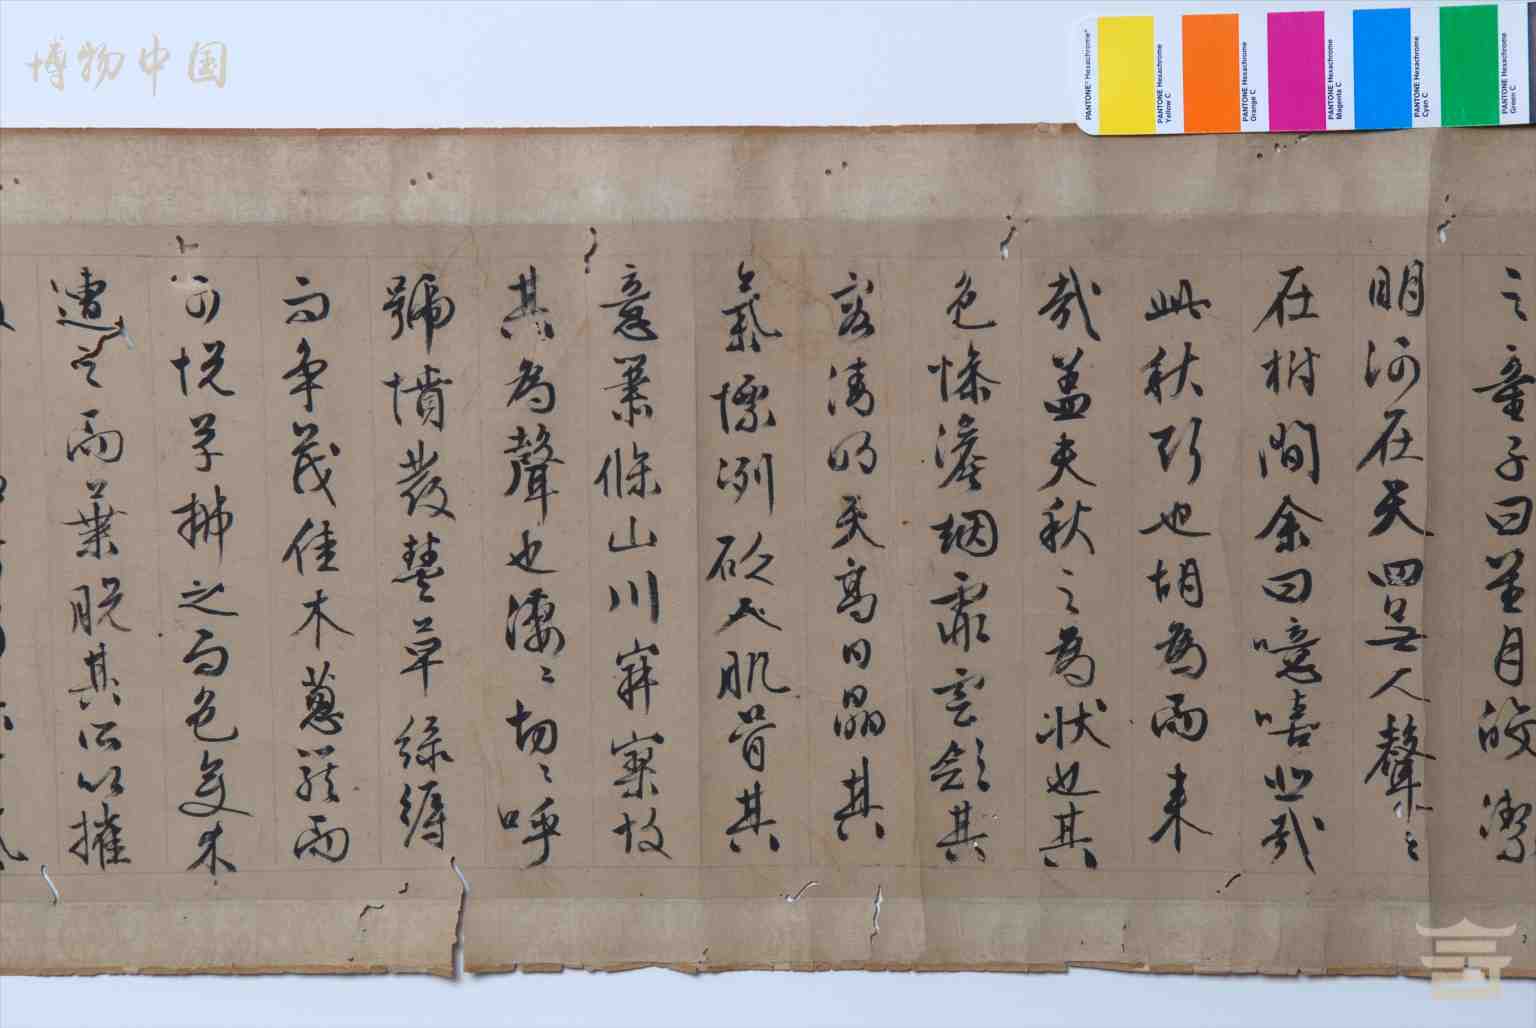 博物中国
PANTONE® Hexachrome®
PANTONE Hexachrome Yellow C
PANTONE Hexachrome Orange C
PANTONE Hexachrome Magenta C
PANTONE Hexachrome Cyan C
PANTONE Hexachrome Green C
之童子曰星月皎潔
明河在天四無人聲〻
在樹間余曰噫嘻悲哉
此秋聲也胡為而來
哉盖夫秋之為狀也其
色慘澹烟霏雲斂其
容清明天高日晶其
氣慄冽砭人肌骨其
意蕭條山川寂寥故
其為聲也淒〻切〻呼
號憤發豐草綠縟
而爭茂佳木蔥蘢而
可悅草拂之而色變木
遭之而葉脫其所以摧